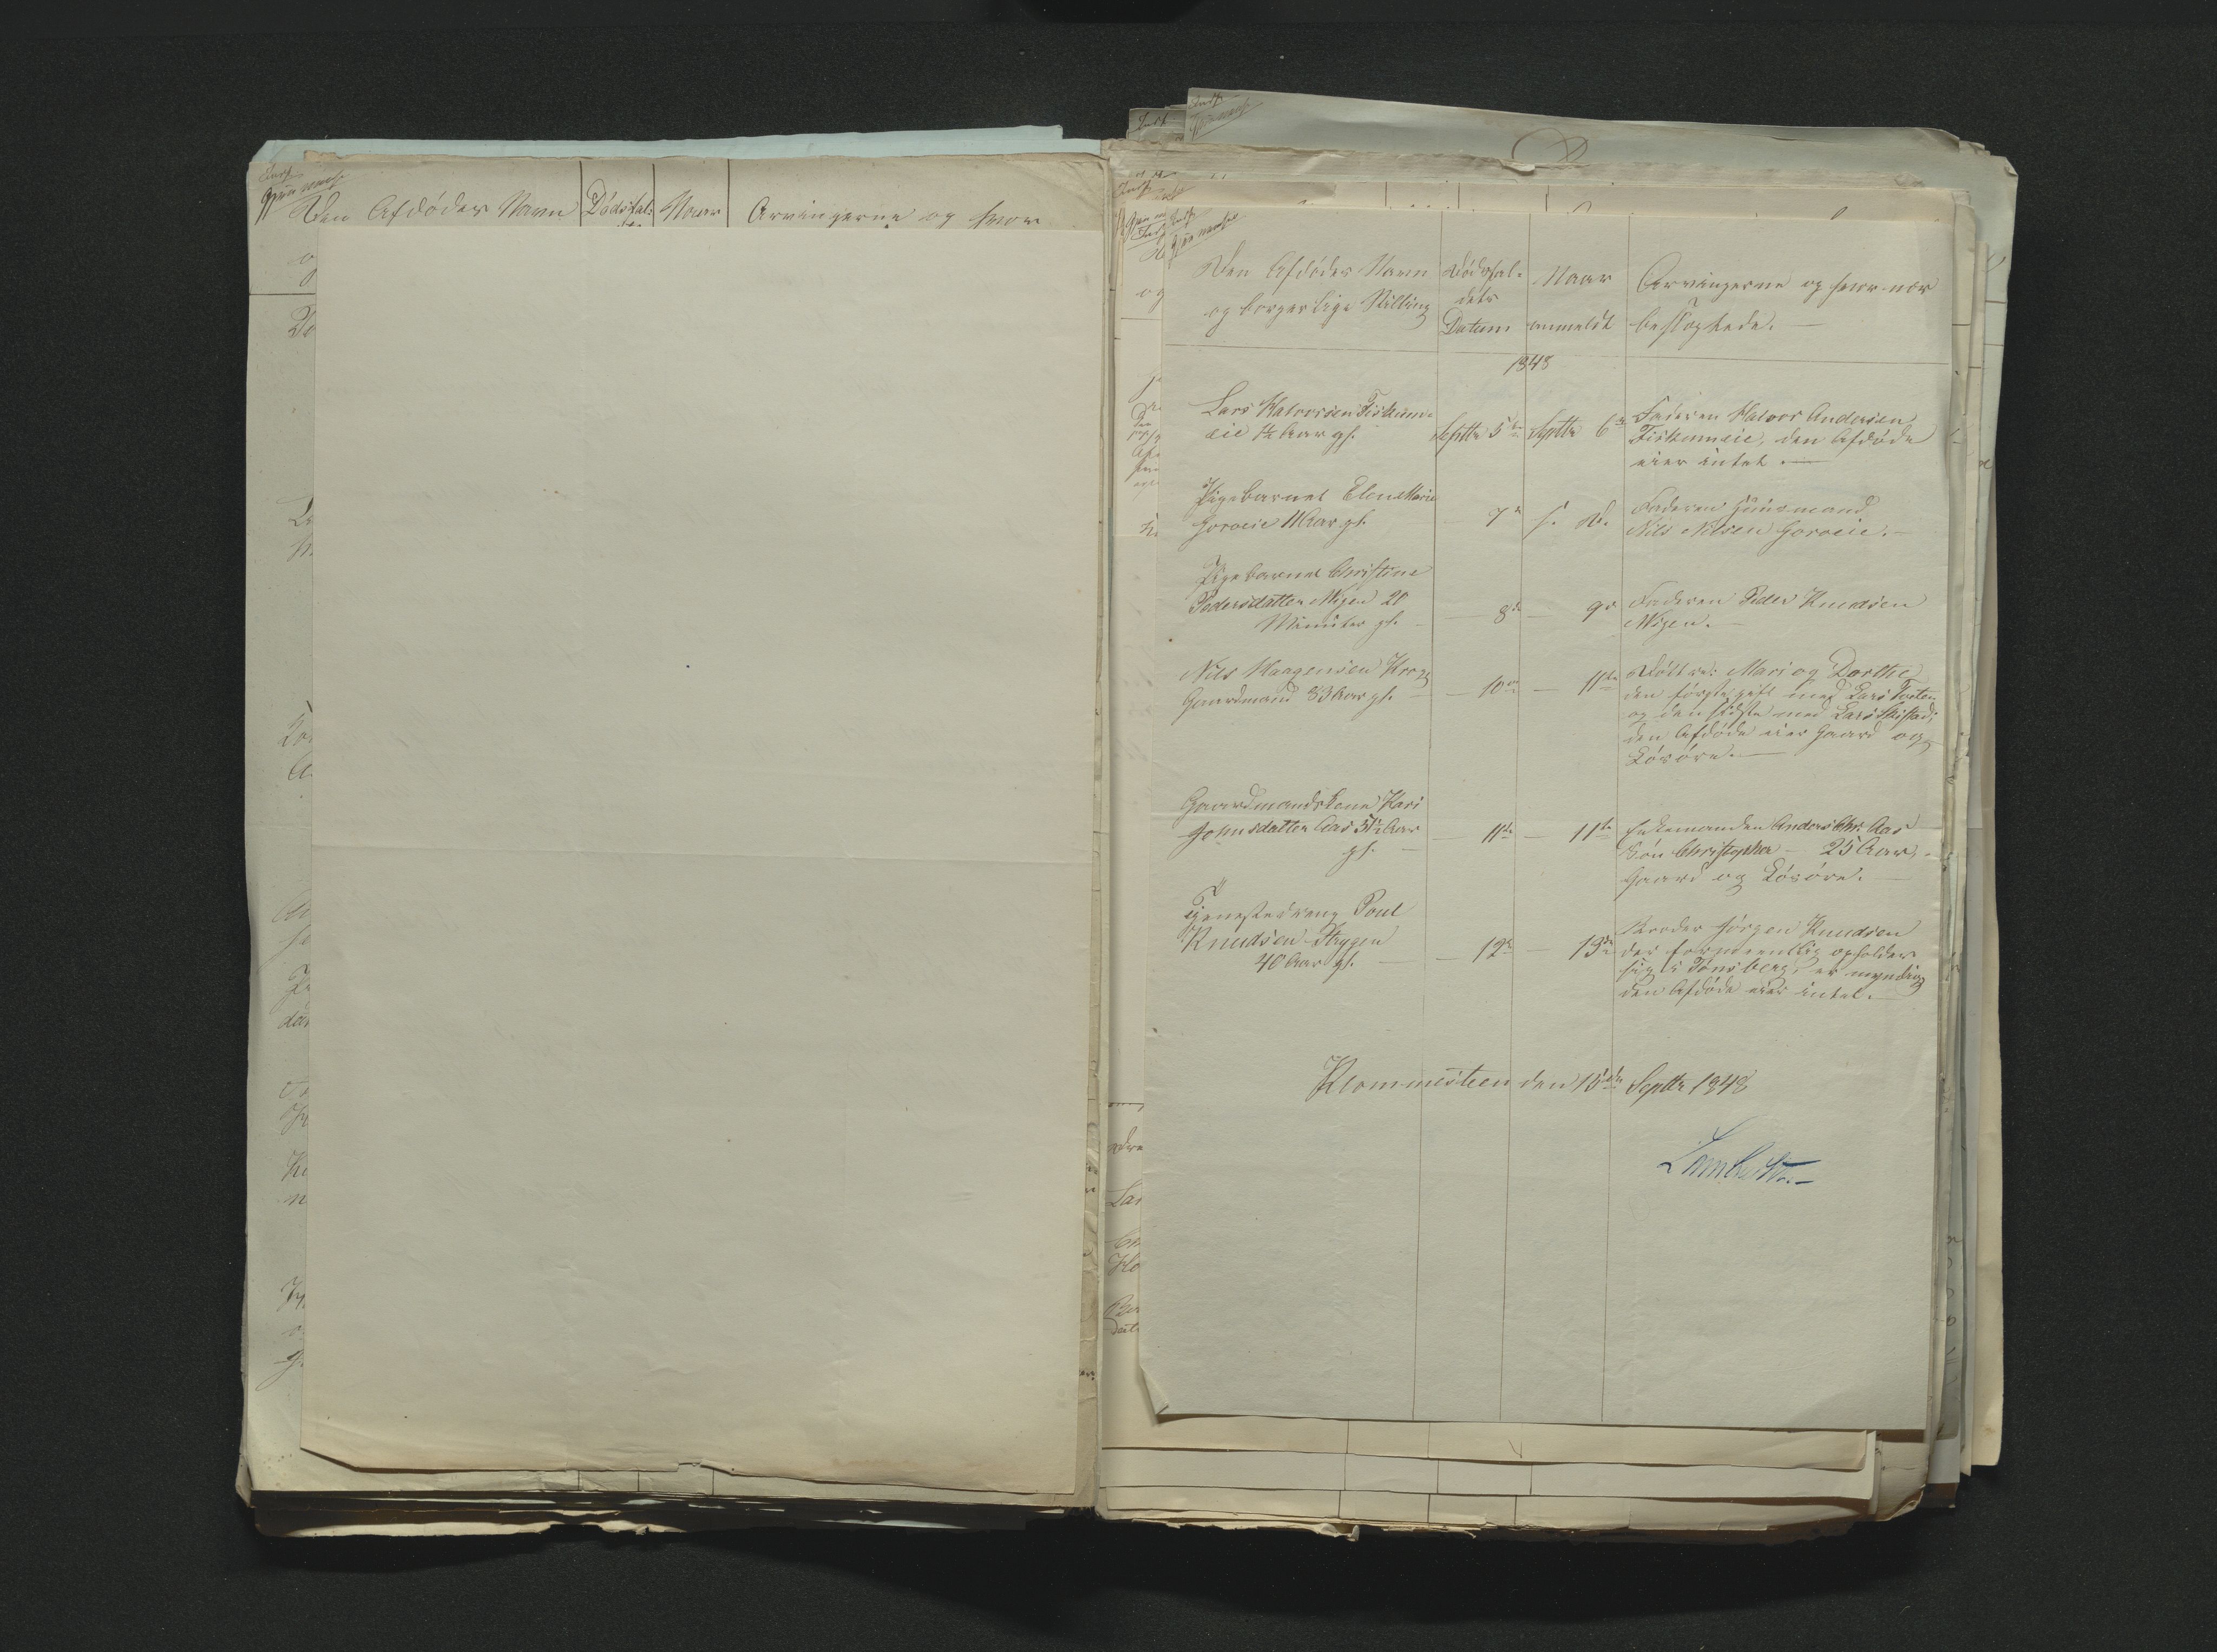 Den Afdödes Navn
Dödsfal-
Naar
Arvingerne og hvor
Den Afdödes Navn
og borgerlige Stilling
Dödsfal-
dets
Datum
Naar
anmeldt
Arvingerne og hvor nær
beslægtede. —
1848
Lars Halvorsen Fiskum-
eie ½ Aar gl.
Septbr 5te
Septbr 6te
Faderen Halvor Andersen
Fiskumeie, den Afdöde
eier intet. —
Pigebarnet Elen Marie
Goroeie 11 Aar gl.
— 7de
s. D.
Faderen Huusmand
Nils Nilsen Goroeie. —
Pigebarnet Christine
Pedersdatter Migen 20
Minuter gl. —
— 8de
— 9de
Faderen Peder Knudsen
Migen. —
Nils Haagensen Krog
Gaardmand 83 Aar gl. —
— 10de
— 11te
Döttre: Mari og Dorthe
den förste gift med Lars Tveten
og den sidste med Lars Skistad;
den Afdöde eier Gaard og
Lösöre. —
Gaardmandskone Kari
Johnsdatter Aas 57½ Aar
gl. —
— 11te
— 11te
Enkemanden Anders Chr. Aas
Sön Christopher — 25 Aar, —
Gaard og Lösöre. —
Tjenestedreng Poul
Knudsen Strygen
40 Aar gl. —
— 12te
— 13de
Broder Jörgen Knudsen
der formeentlig opholder
sig i Tönsberg, er myndig
den Afdöde eier intet. —
Klommesteen den 15de Septbr 1848